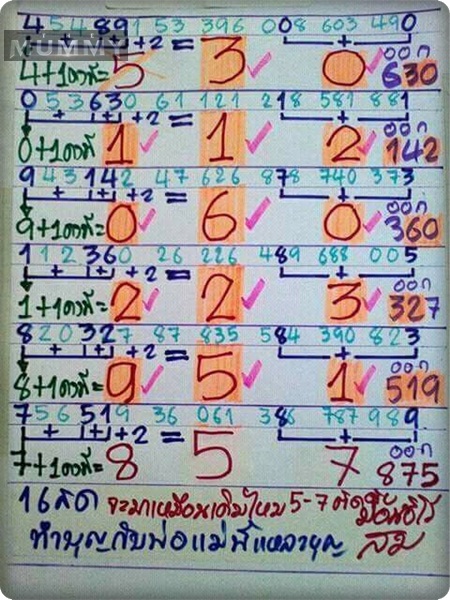 MUMMY
454891 53 396 008 603 490
+ + +2 = +
4+1คงที่=5 3 0 ออก 630
053630 61 121 218 581 881
+ + +2 = +
0+1คงที่ 1 1 2 ออก 142
943142 47 626 878 740 373
+ + +2 = +
9+1คงที่=0 6 0 ออก 360
112360 26 226 489 688 005
+ + +2 = +
1+1คงที่=2 2 3 ออก 327
820327 87 835 584 390 823
+ + +2 = +
8+1คงที่=9 5 1 ออก 519
756519 36 061 386 787 989
+ + +2 = +
7+1คงที่=8 5 7 ออก 875
จะมาเหมือนเดิมไหม 5-7
ทำบุญกับพ่อแม่